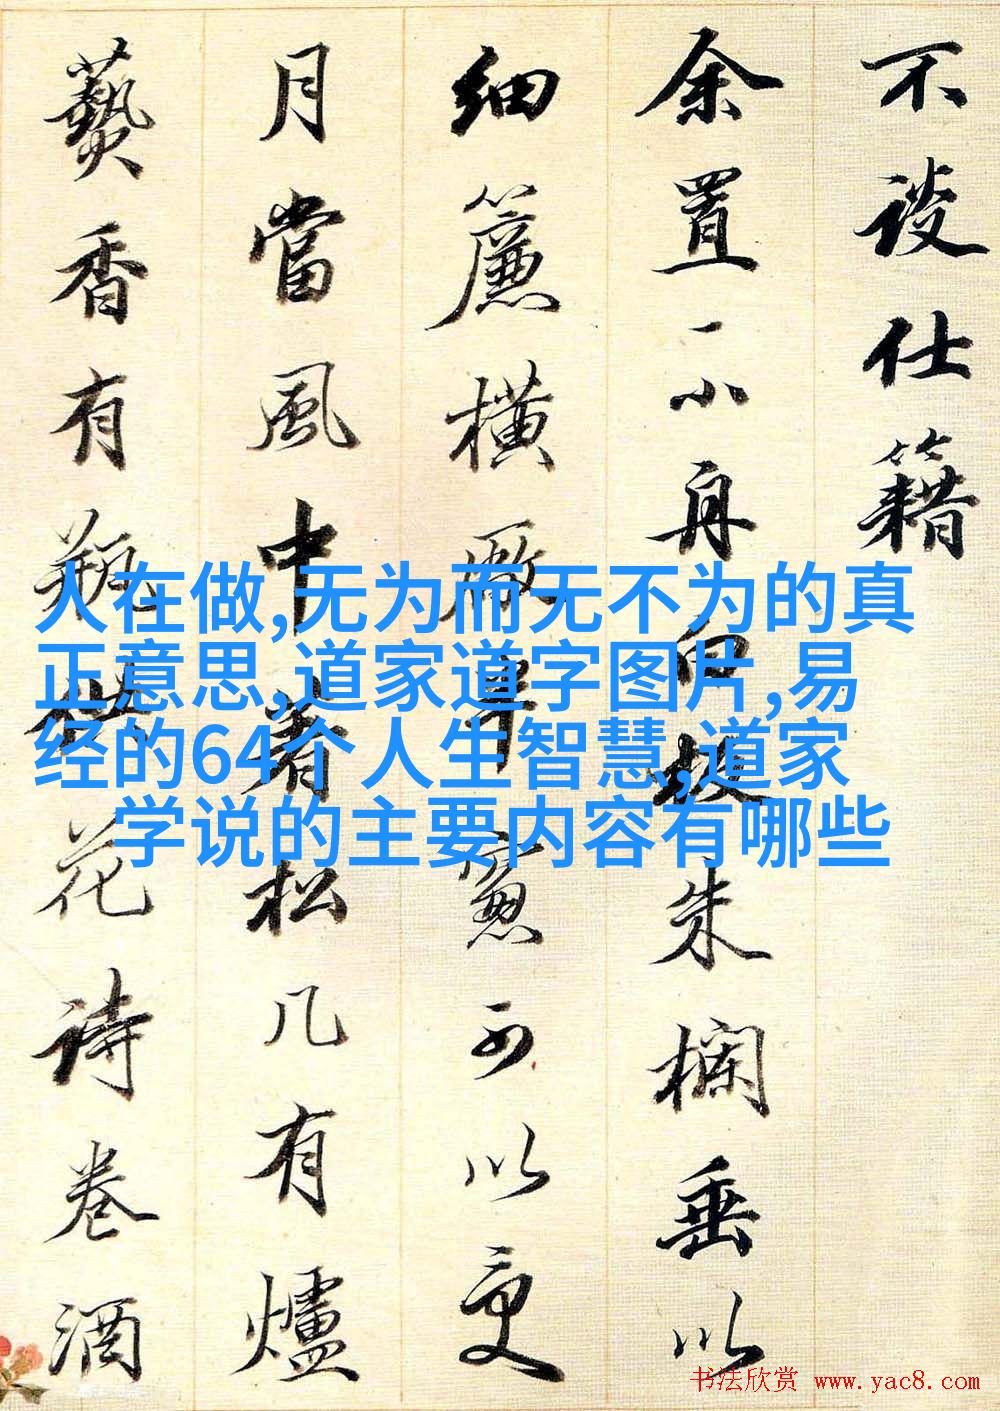 不談仕籍
余置一小舟白板朱欄垂以
細簾橫廠窻可以更
月當風中著松几有爐
爇香有瓶花詩卷酒
人在做,无为而无不为的真
正意思,道家道字图片,易
经的64个人生智慧,道家
学说的主要内容有哪些
书法欣赏 www.yac8.com